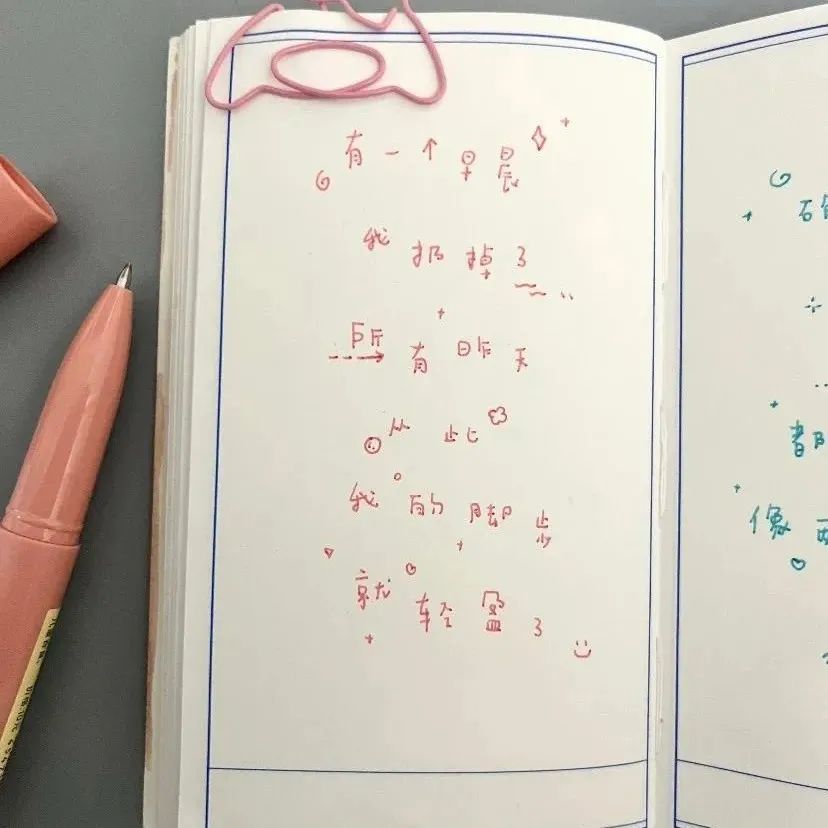 有一个早晨
我扔掉了
所有昨天
从此
我的脚步
就轻盈了
都
像